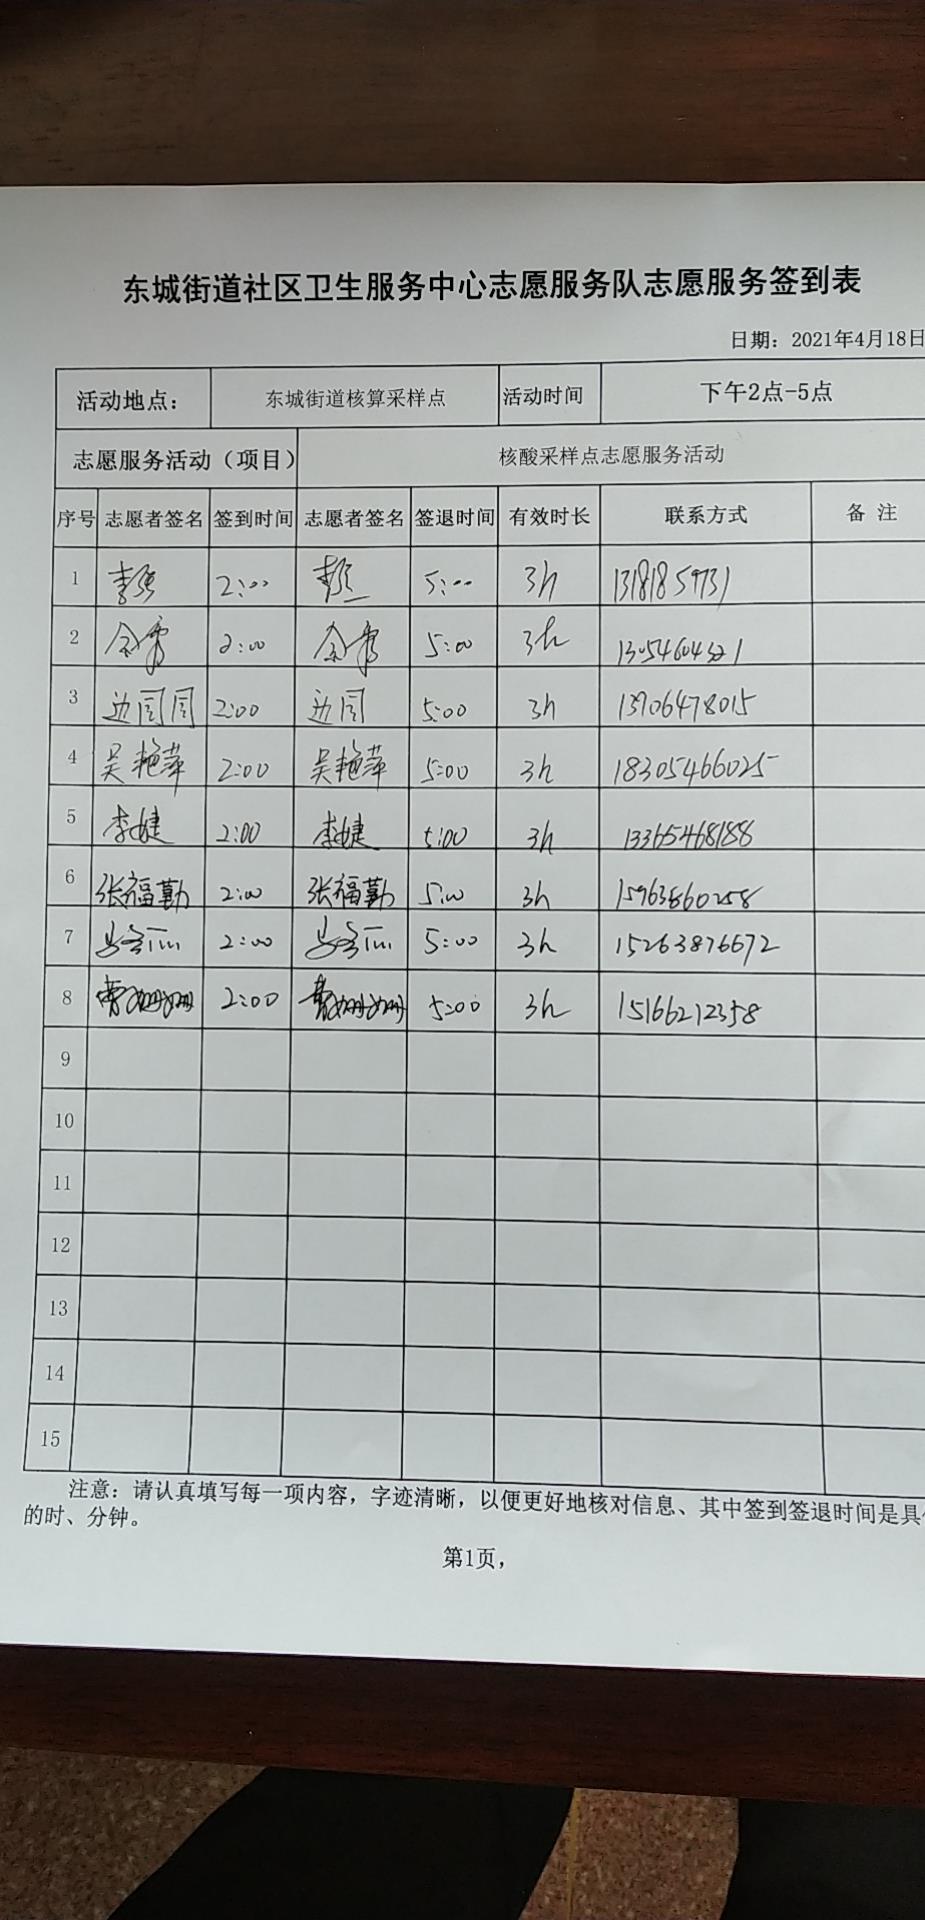 东城街道社区卫生服务中心志愿服务队志愿服务签到表
日期：2021年4月18日
活动地点： 东城街道核算采样点 活动时间 下午2点-5点
志愿服务活动（项目） 核酸采样点志愿服务活动
序号 志愿者签名 签到时间 志愿者签名 签退时间 有效时长 联系方式 备 注
1 2:00 5:00 3h 13181859731
2 2:00 5:00 3h
3 边園園 2:00 边園 5:00 3h 13706478015
4 吴艳萍 2:00 吴艳萍 5:00 3h 18305466025
5 李婕 2:00 李婕 5:00 3h 13365468188
6 张福勤 2:00 张福勤 5:00 3h 15963860258
7 2:00 5:00 3h 15263876672
8 曹姗姗 2:00 曹姗姗 5:00 3h 15166212358
9
10
11
12
13
14
15
注意：请认真填写每一项内容，字迹清晰，以便更好地核对信息、其中签到签退时间是具
的时、分钟。
第1页，